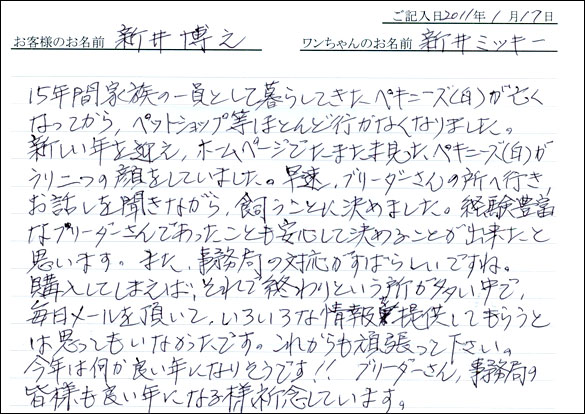 ご記入日2011年1月17日
お客様のお名前 新井 博之 ワンちゃんのお名前 新井ミッキー
15年間家族の一員として暮らしてきたペキニーズ(白)が亡く
なってから、ペットショップ等ほとんど行かなくなりました。
新しい年を迎え、ホームページでたまたま見た、ペキニーズ(白)が
うり二つの顔をしていました。早速、ブリーダーさんの所へ行き、
お話しを聞きながら、飼うことに決めました。経験豊富
なブリーダーさんであったことも安心して決めることが出来たと
思います。また、事務局の対応がすばらしいですね。
購入してしまえば、それで終わりという所が多い中で、
毎日メールを頂いて、いろいろな情報提供してもらうと
は思ってもいなかったです。これからも頑張って下さい。
今年は何か良い年になりそうです!! ブリーダーさん、事務局の
皆様も良い年になる様祈念しています。